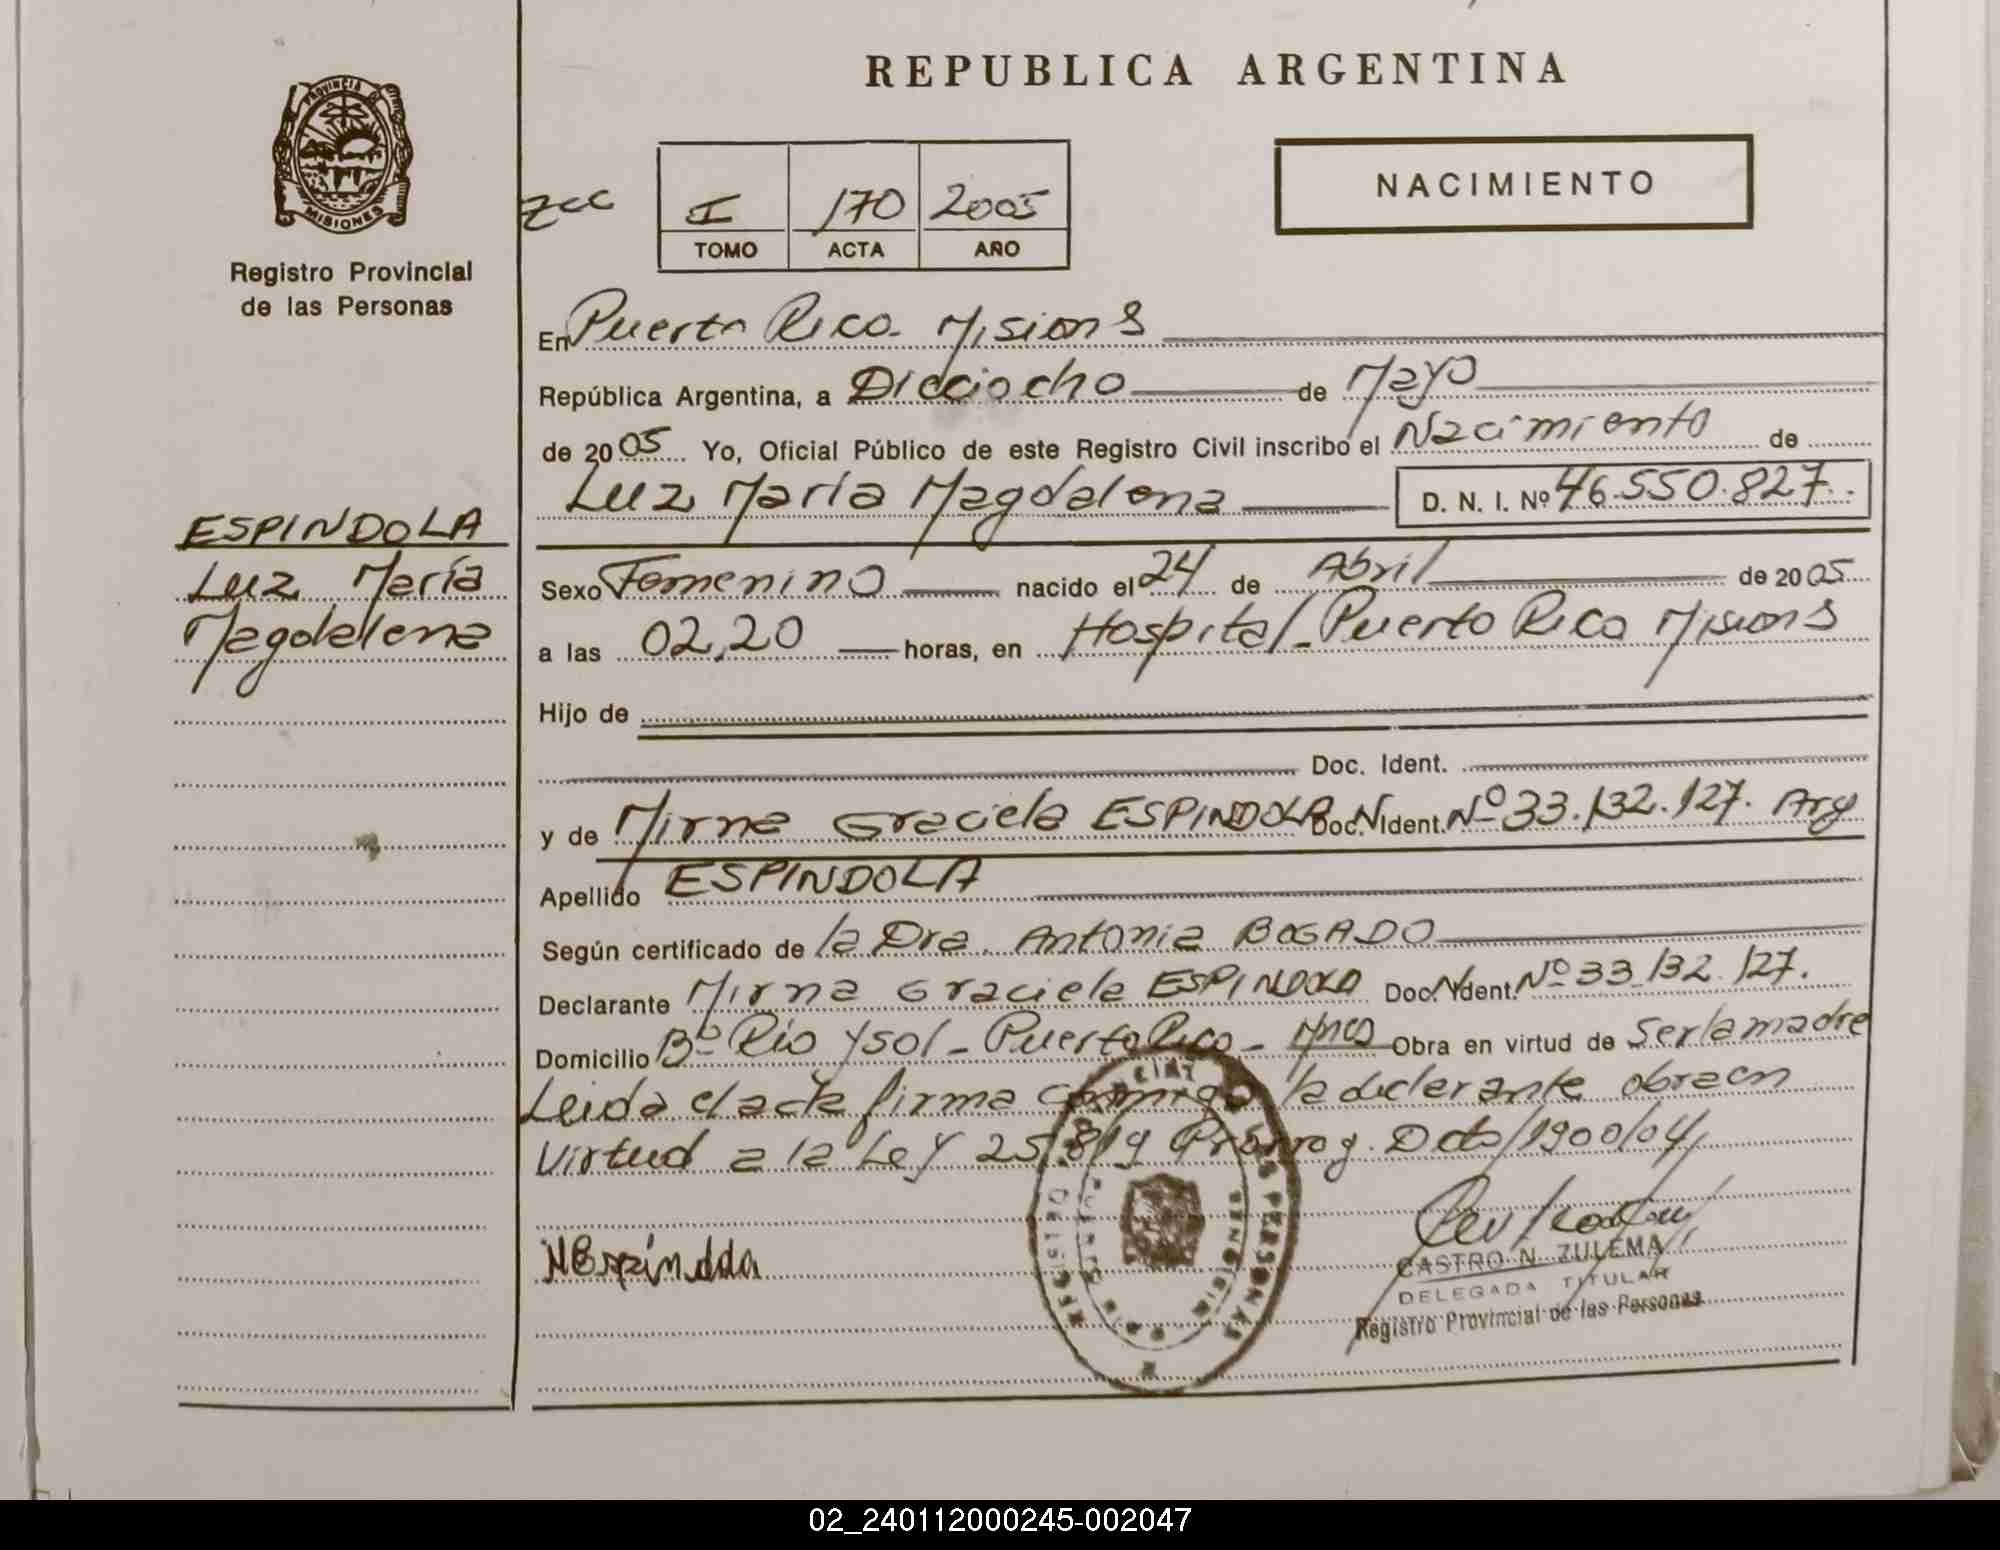 REPUBLICA ARGENTINA
PROVINCIA DE
MISIONES
Registro Provincial
de las Personas
I 170 2005
TOMO ACTA AÑO
NACIMIENTO
En Puerto Rico - Misiones
República Argentina, a Dieciocho de Mayo
de 2005 Yo, Oficial Público de este Registro Civil inscribo el Nacimiento de
Luz María Magdalena D. N. I. Nº 46.550.827.
ESPINDOLA
Luz María
Magdalena
Sexo Femenino nacido el 24 de Abril de 2005
a las 02,20 horas, en Hospital - Puerto Rico Misiones
Hijo de
Doc. Ident.
y de Mirna Graciela ESPINDOLA Doc. Ident. Nº 33.132.127. Arg
Apellido ESPINDOLA
Según certificado de la Dra. Antonia BOGADO
Declarante Mirna Graciela ESPINDOLA Doc. Ident. Nº 33.132.127.
Domicilio Bº Río y Sol - Puerto Rico - Mnes Obra en virtud de Ser la madre
Leida el acta firma conmigo la declarante obra en
virtud a la Ley 25.819 Prorrog. Dcto/1900/04
MEspindola
CASTRO N. ZULEMA
DELEGADA TITULAR
Registro Provincial de las Personas
02_240112000245-002047